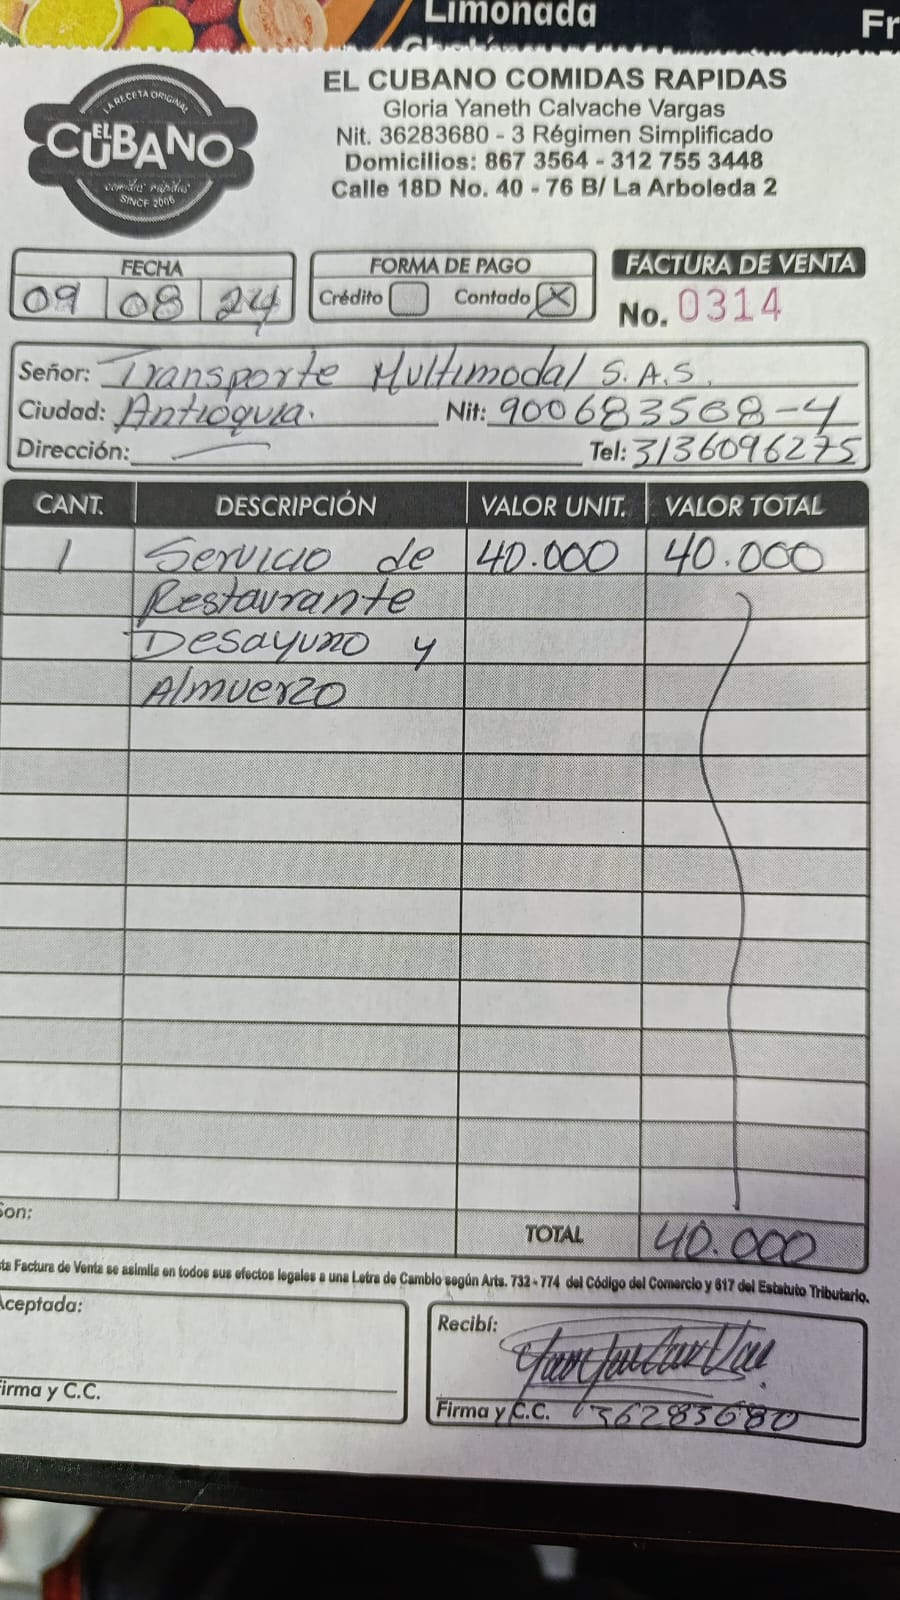 Limonada
Fr
LA RECETA ORIGINAL
EL CUBANO
comidas rapidas
SINCE 2006
EL CUBANO COMIDAS RAPIDAS
Gloria Yaneth Calvache Vargas
Nit. 36283680 - 3 Régimen Simplificado
Domicilios: 867 3564 - 312 755 3448
Calle 18D No. 40 - 76 B/ La Arboleda 2
FECHA
09 08 24
FORMA DE PAGO
Crédito Contado X
FACTURA DE VENTA
No. 0314
Señor: Transporte Multimodal S.A.S.
Ciudad: Antioquia. Nit: 900683508-4
Dirección: Tel: 3136096275
CANT. DESCRIPCIÓN VALOR UNIT. VALOR TOTAL
1 Servicio de 40.000 40.000
Restaurante
Desayuno y
Almuerzo
Son:
TOTAL 40.000
ta Factura de Venta se asimila en todos sus efectos legales a una Letra de Cambio según Arts. 732 - 774 del Código del Comercio y 617 del Estatuto Tributario.
Aceptada:
irma y C.C.
Recibí:
Firma y C.C. 36283680